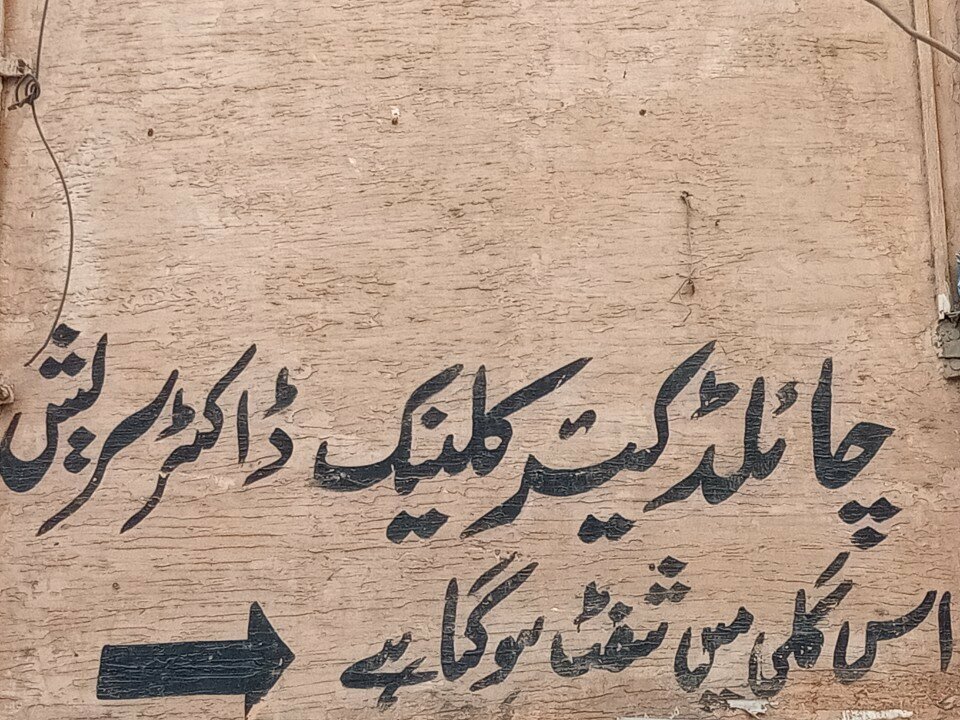 چائلڈ کیئر کلینک ڈاکٹر سریش
اس گلی میں شفٹ ہوگیا ہے